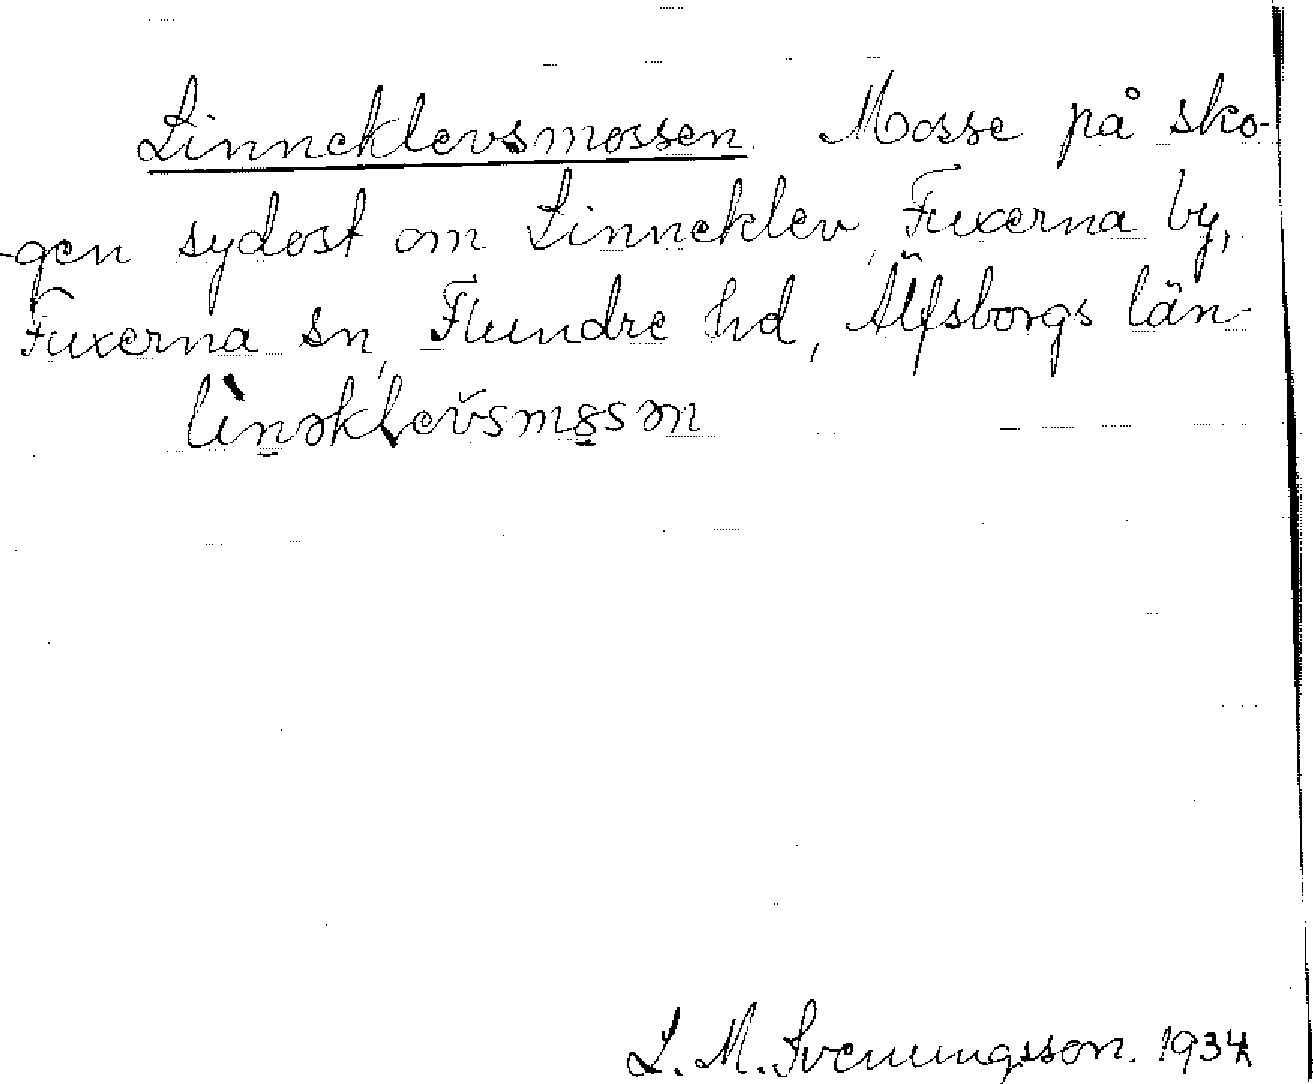 Linneklevsmossen. Mosse på sko-
-gen sydost om Linneklev, Fuxerna by,
Fuxerna sn, Flundre hd, Älfsborgs län
lìnəklevsmssən
L. M. Svenungsson. 1934